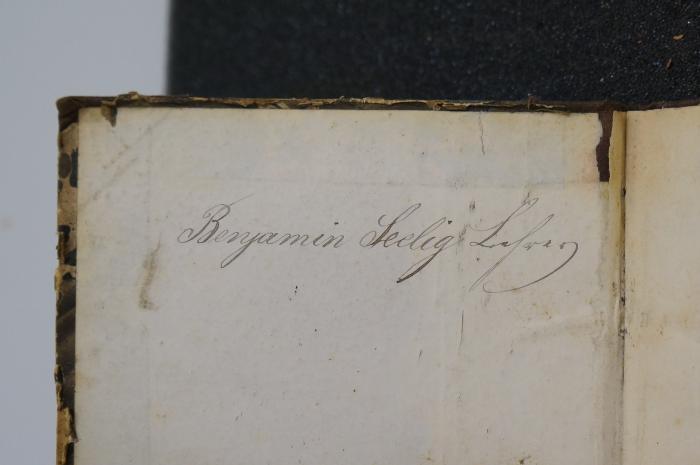 Benjamin Seelig Lehrer